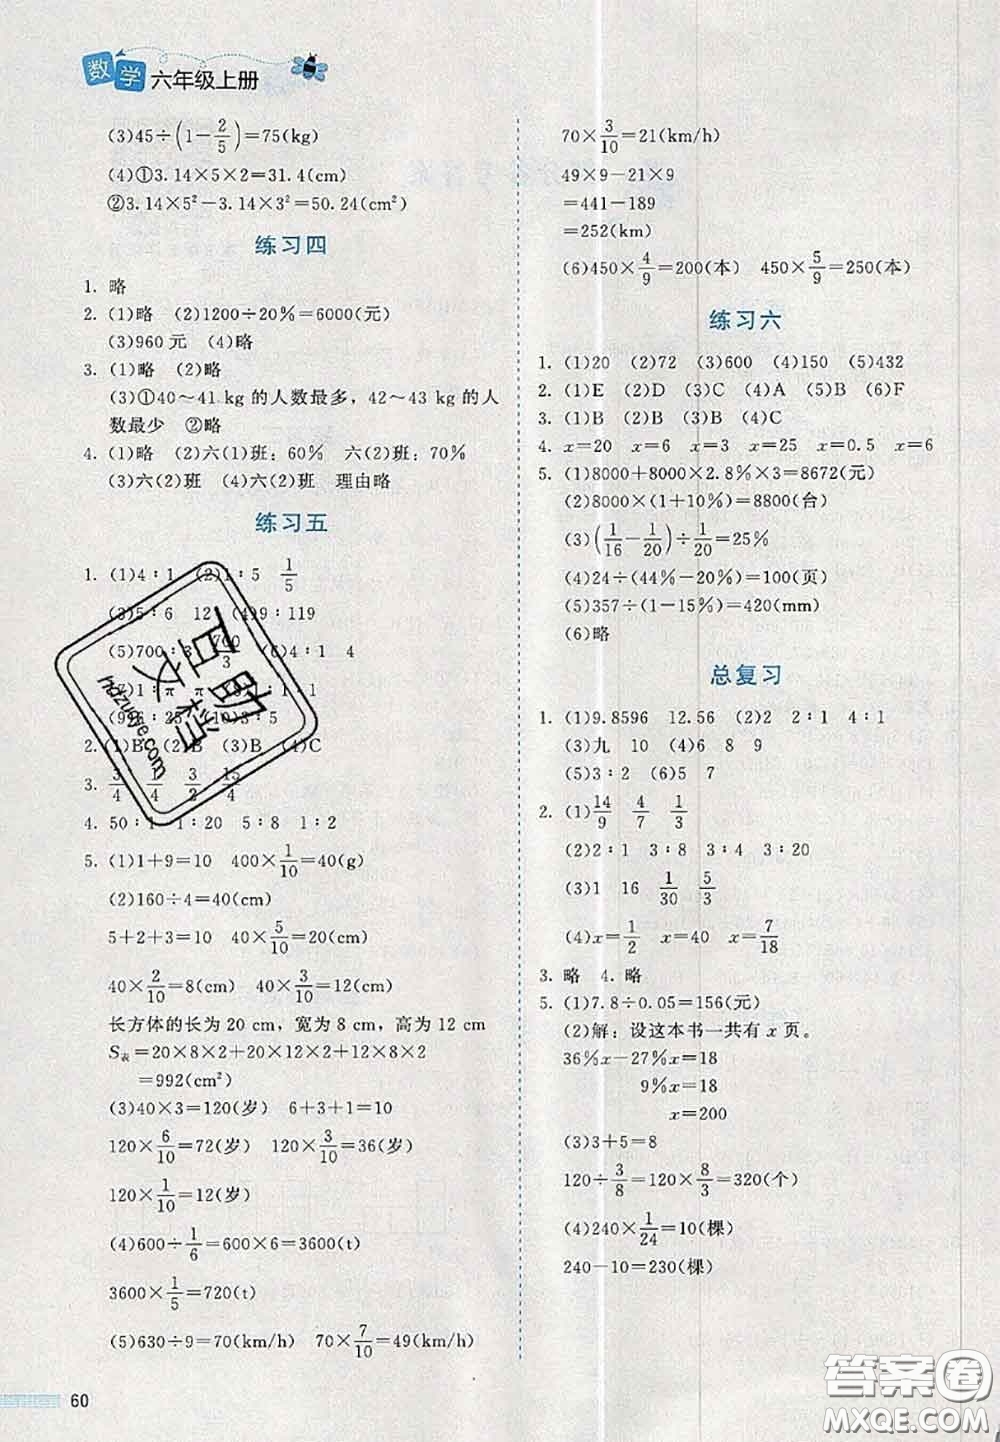 数学 六年级上册
(3)45÷(1−2/5)=75(kg)
(4)①3.14×5×2=31.4(cm)
②3.14×5²−3.14×3²=50.24(cm²)
练习四
1. 略
2. (1)略 (2)1200÷20%=6000(元)
(3)960元 (4)略
3. (1)略 (2)略
(3)①40～41 kg 的人数最多，42～43 kg 的人
数最少 ②略
4. (1)略 (2)六(1)班：60% 六(2)班：70%
(3)六(2)班 (4)六(2)班 理由略
练习五
1. (1)4∶1 (2)1∶5 1/5
(3)5∶6 12 (4)9∶119
(5)700∶3 700/3 (6)4∶1 4
(7)1∶π π
(10)3∶5
2. (1)B (2)B (3)B (4)C
3. 3/4 1/4 3/2 15/4
4. 50∶1 1∶20 5∶8 1∶2
5. (1)1+9=10 400×1/10=40(g)
(2)160÷4=40(cm)
5+2+3=10 40×5/10=20(cm)
40×2/10=8(cm) 40×3/10=12(cm)
长方体的长为 20 cm，宽为 8 cm，高为 12 cm
S表=20×8×2+20×12×2+12×8×2
=992(cm²)
(3)40×3=120(岁) 6+3+1=10
120×6/10=72(岁) 120×3/10=36(岁)
120×1/10=12(岁)
(4)600÷1/6=600×6=3600(t)
3600×1/5=720(t)
(5)630÷9=70(km/h) 70×7/10=49(km/h)
70×3/10=21(km/h)
49×9−21×9
=441−189
=252(km)
(6)450×4/9=200(本) 450×5/9=250(本)
练习六
1. (1)20 (2)72 (3)600 (4)150 (5)432
2. (1)E (2)D (3)C (4)A (5)B (6)F
3. (1)B (2)B (3)B (4)C
4. x=20 x=6 x=3 x=25 x=0.5 x=6
5. (1)8000+8000×2.8%×3=8672(元)
(2)8000×(1+10%)=8800(台)
(3)(1/16−1/20)÷1/20=25%
(4)24÷(44%−20%)=100(页)
(5)357÷(1−15%)=420(mm)
(6)略
总复习
1. (1)9.8596 12.56 (2)2 2∶1 4∶1
(3)九 10 (4)6 8 9
(5)3∶2 (6)5 7
2. (1)14/9 4/7 1/3
(2)2∶1 3∶8 3∶4 3∶20
(3)1 16 1/30 5/3
(4)x=1/2 x=40 x=7/18
3. 略 4. 略
5. (1)7.8÷0.05=156(元)
(2)解：设这本书一共有 x 页。
36%x−27%x=18
9%x=18
x=200
(3)3+5=8
120÷3/8=120×8/3=320(个)
(4)240×1/24=10(棵)
240−10=230(棵)
60
互助文档
hdzuoye.com
答案圈
MXQE.COM